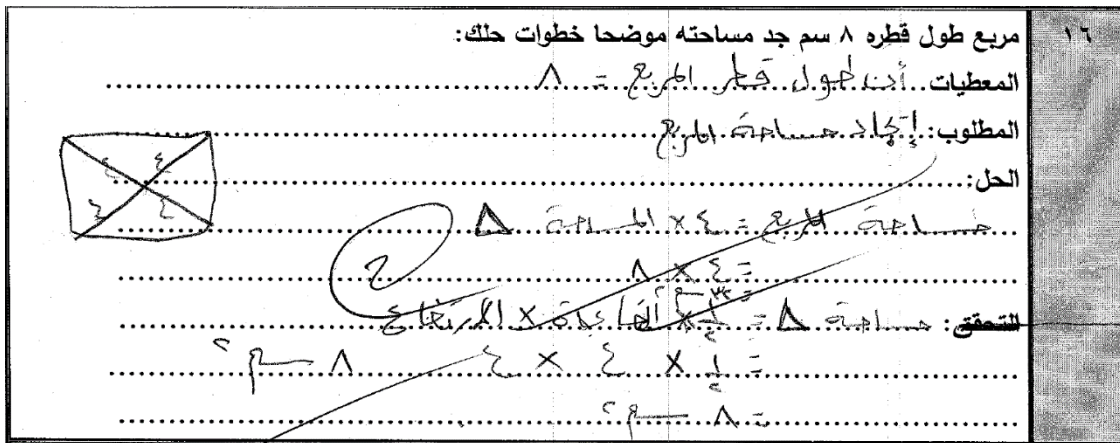 ١٦
مربع طول قطره ٨ سم جد مساحته موضحا خطوات حلك:
المعطيات أن طول قطر المربع = ٨
المطلوب: إيجاد مساحة المربع
الحل:
٤ ٤
٤ ٤
مساحة المربع = ٤ × المساحة △
= ٤ × ٨
= ٣٢ سم٢
للتحقق: مساحة △ = ١/٢ × القاعدة × الارتفاع
= ١/٢ × ٤ × ٤ ٨ سم٢
= ٨ سم٢